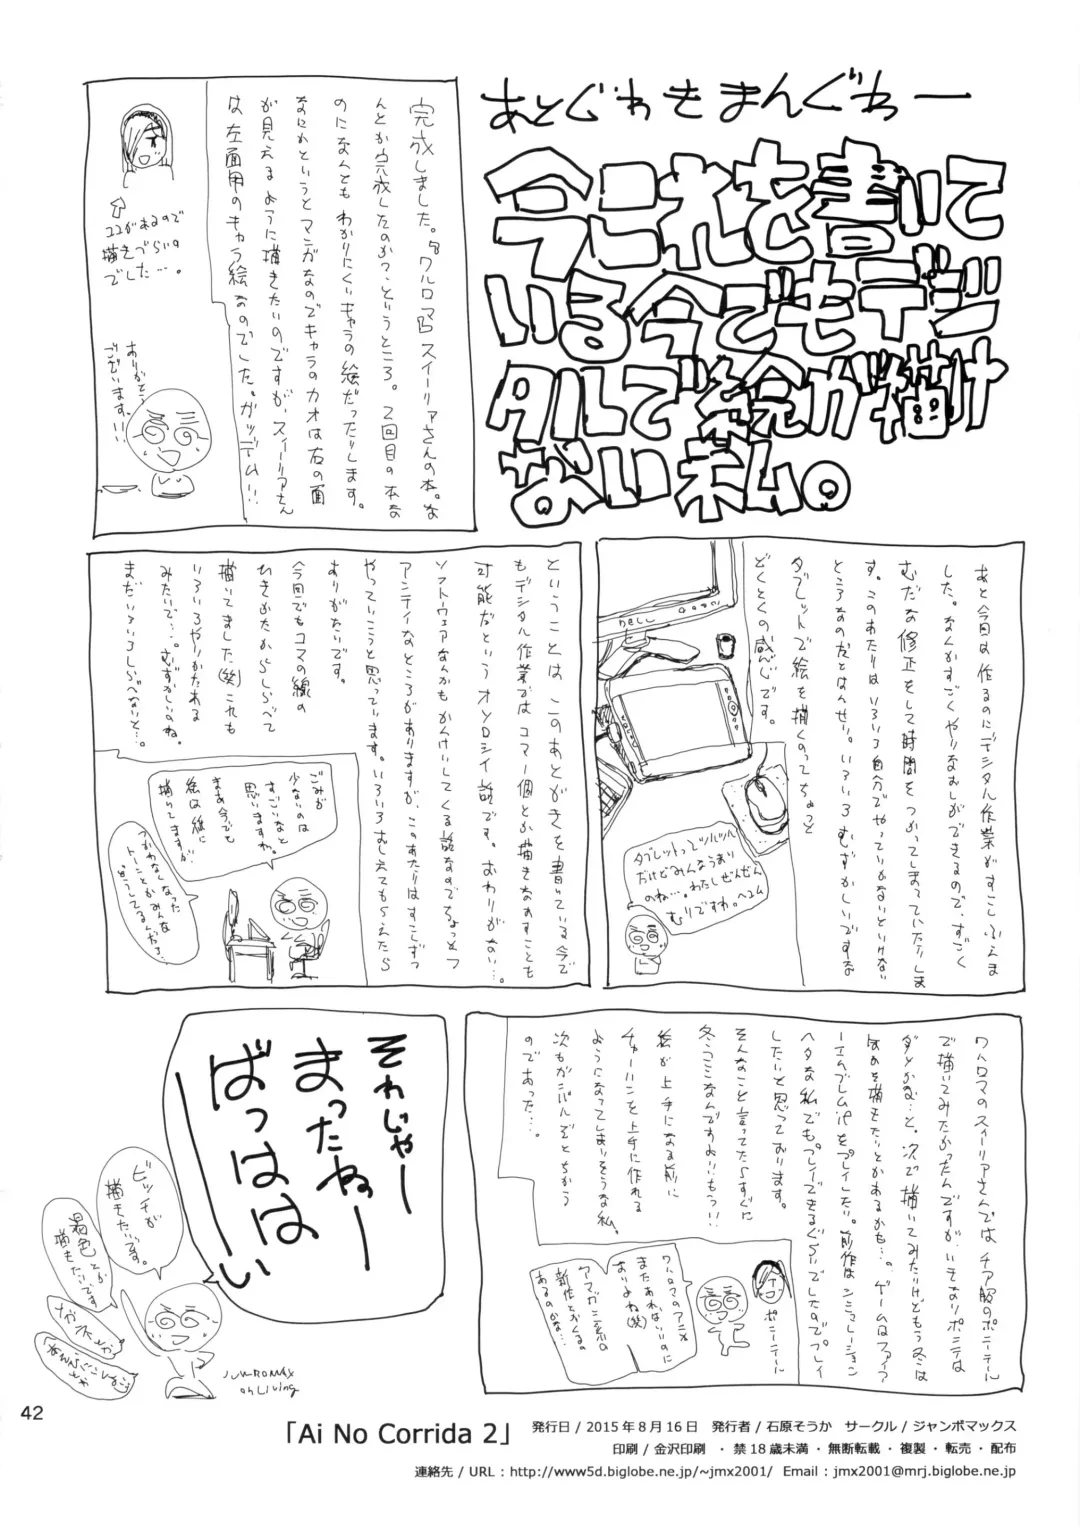 あとぐわきまんぐわー
今これを書いて
いる今でもデジ
タルで絵が描け
ない私。
完成しました。『ワルロマ』スイーリアさんの本。な
んとか完成したのかっ、というところ。2回目の本な
のになんとも わかりにくいキャラの絵だったりします。
なにかというと マンガなのでキャラのカオは右の面
が見えるように描きたいのですが、スイーリアさん
は左面用のキャラ絵なのでした。ガッデム!!
ココがあるので
描きづらいの
でした…。
ありがとう
ございます!!
あと今回は作るのにデジタル作業がすこしふえま
した。なんかすごくやりなおしができるので、すごく
むだな修正をして時間をつかってしまっていたりしま
す。このあたりは いろいろ自分でやっていかないといけない
ところなのだとはんせい。いろいろ むずかしいですな
タブレットで絵を描くのってちょっと
どくとくの感じです。
DELL
タブレットってツルツル
だけどみんなうまい
のね…。わたしぜんぜん
むりですわ。
ということは このあとがきを書いている今で
もデジタル作業では コマ一個とか描きなおすことも
可能だという オソロシイ話です。おわりがない…。
ソフトウェアなんかも かんけいしてくる話なのでちょっと
アンティなところがありますが、このあたりはすこしずつ
やっていこうと思っています。いろいろおしえてもらえたら
ありがたいです。
今回でもコマの線の
ひきかたからしらべて
描いてました(笑)これも
いろいろやりかたある
みたいで…。むずかしいのね。
まだいろいろしらべないと…。
ごみが
少ないのは
すごいなと
思いますわ。
まあ今でも
絵は後に
描いてますが
つかわなくなった
トーンとかみんな
どうしてるんだろう。
ワルロマのスイーリアさんでは チア服のポニーテール
で描いてみたかったんですが、いきなりポニテは
ダメかな…と。次で描いてみたいけどもう冬は
ーエムブレムifをプレイしたい。前作はシミュレーション
ヘタな私でも。プレイできるぐらいでしたのでプレイ
したいと思っております。
そんなこと言ってたらすぐに
冬コミなんですよ!!もうっ!!
絵が上手になる前に
チャーハンを上手に作れる
ようになってしまいそうな私。
次もガンバルぞとちかう
のであった…。
ポニーテール
ワルロマのアニメ
またあればいいのに
なりよね(笑)
新作とかくるの
あるのかな…
それじゃー
まったねー
ばっはは
ーい
ビッチが
描きたいです。
褐色とか
描きたいです
JUMBOMAX
on Living
42
「Ai No Corrida 2」
発行日 / 2015 年 8 月 16 日　発行者 / 石原そうか　サークル / ジャンボマックス
印刷 / 金沢印刷　・ 禁 18 歳未満 ・ 無断転載 ・ 複製 ・ 転売 ・ 配布
連絡先 / URL : http://www5d.biglobe.ne.jp/~jmx2001/　Email : jmx2001@mrj.biglobe.ne.jp